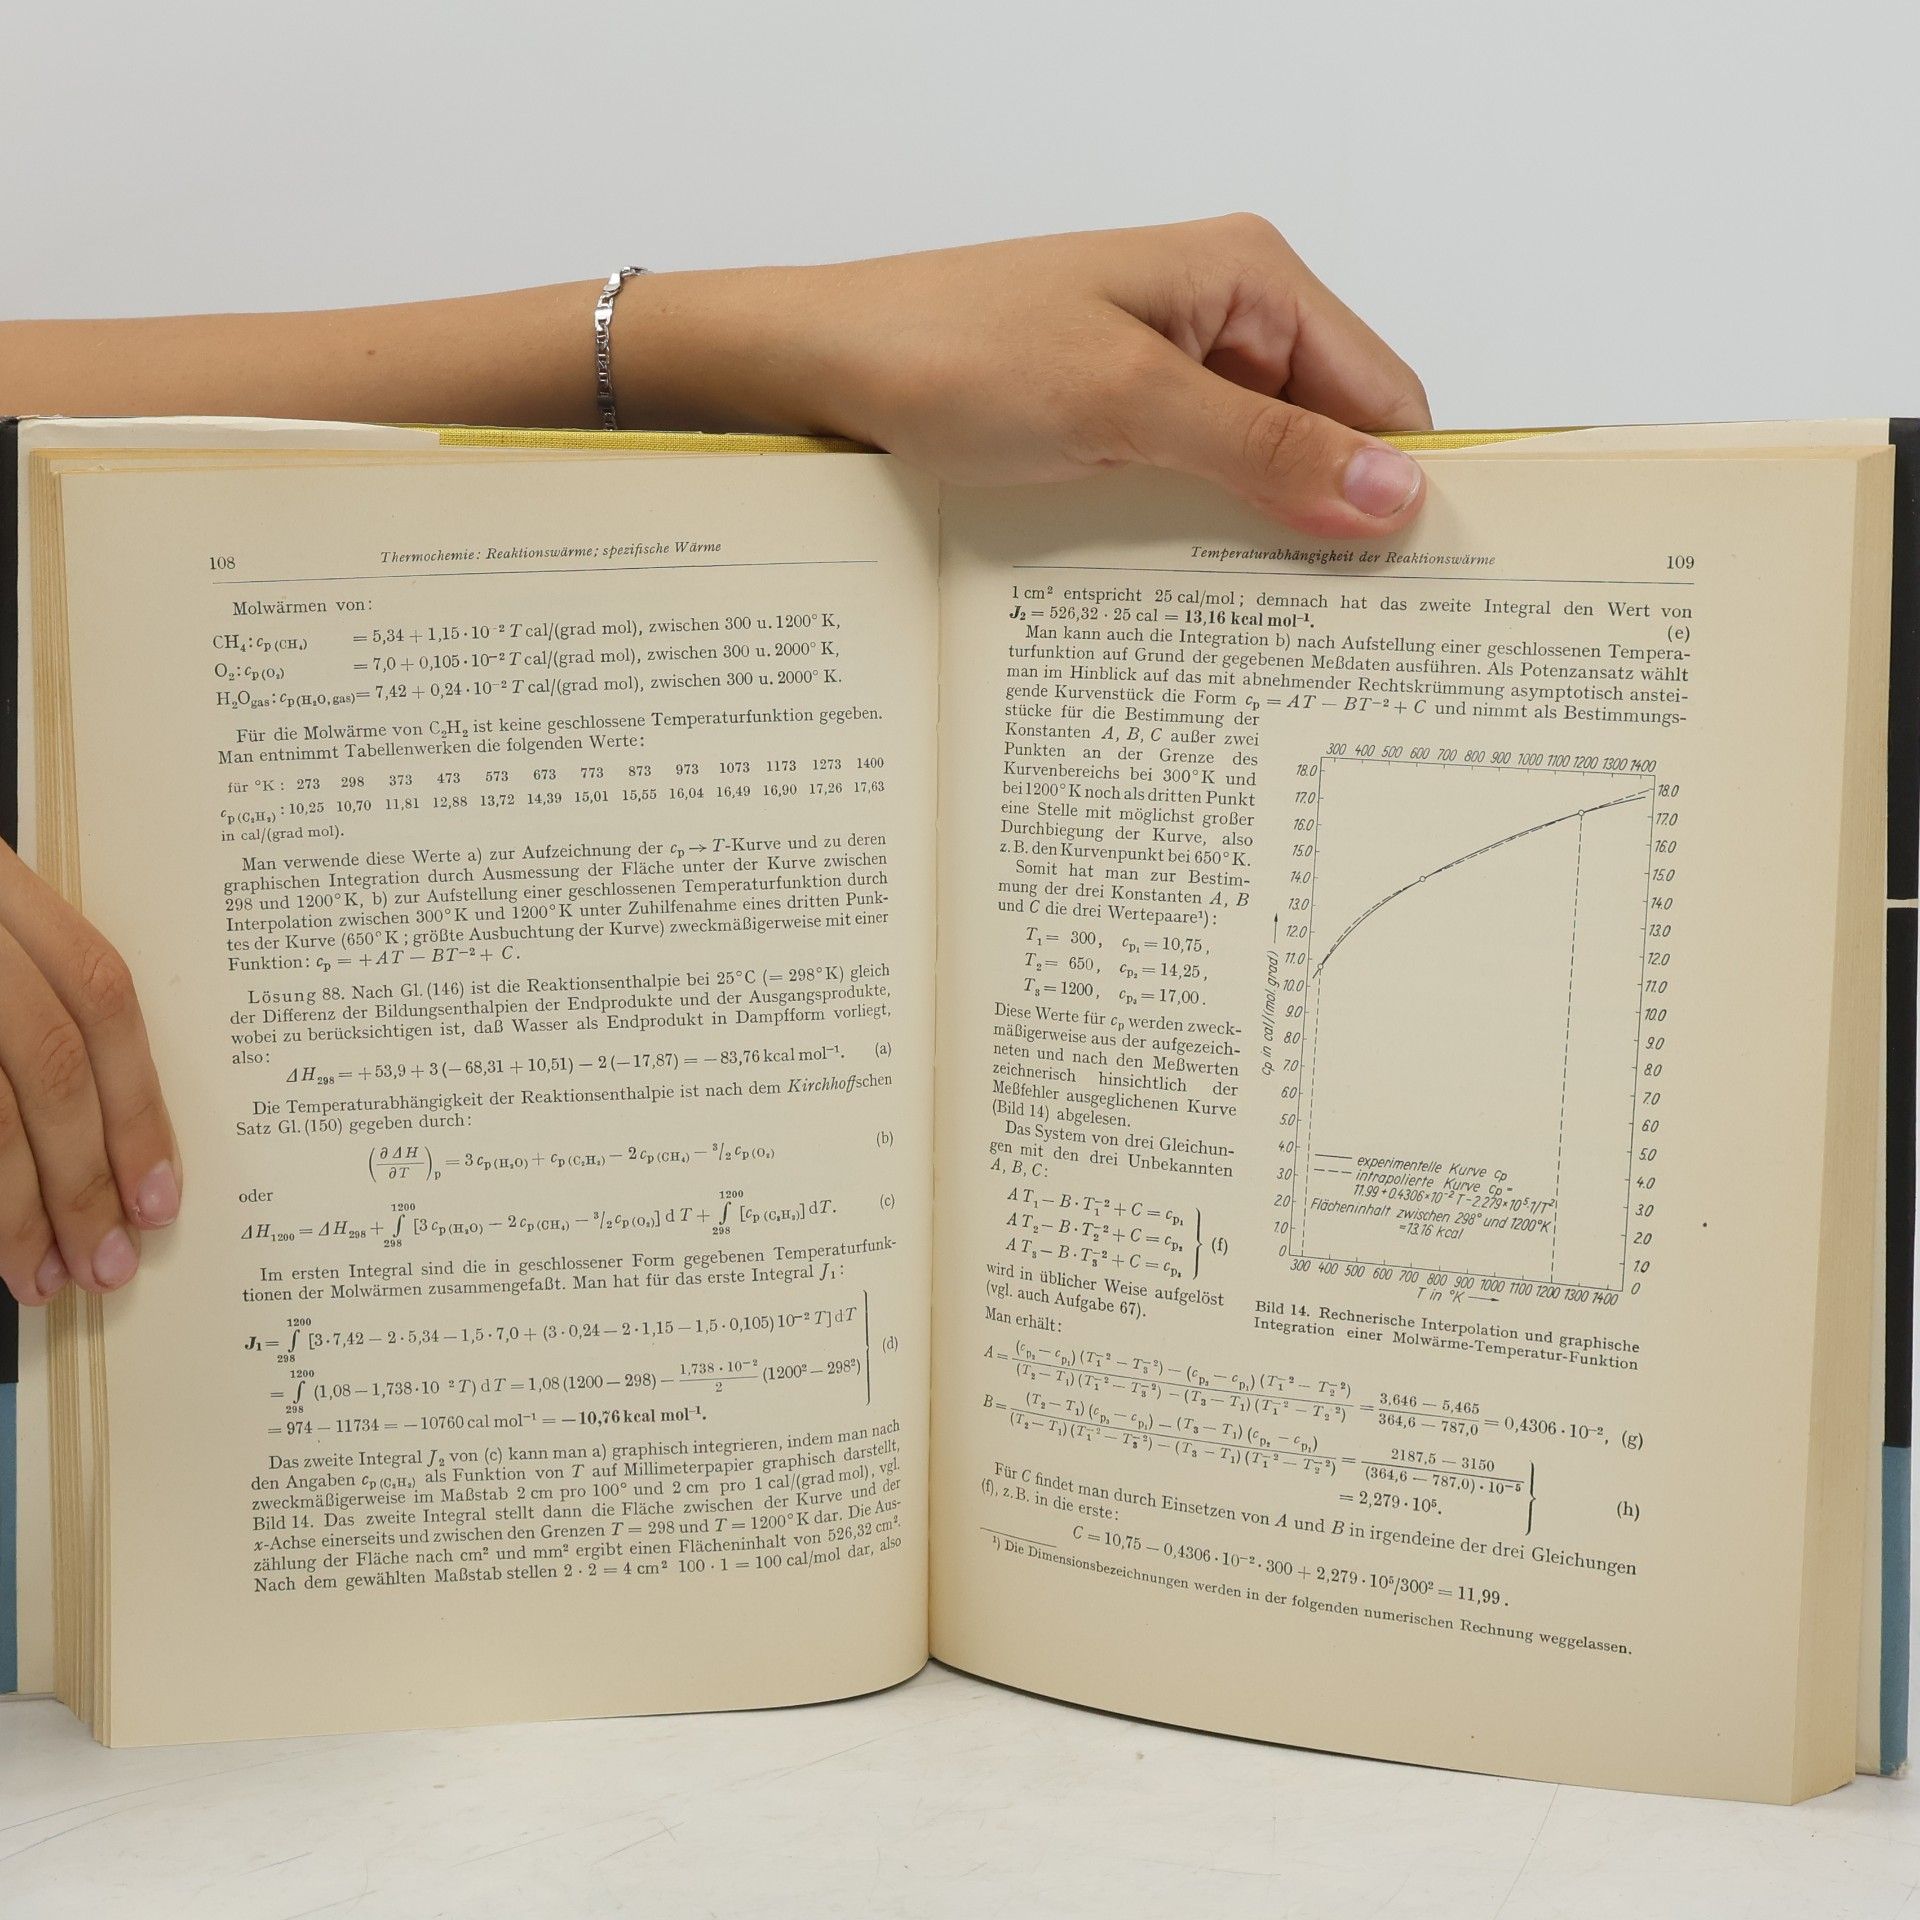 108 Thermochemie: Reaktionswärme; spezifische Wärme
Molwärmen von:
CH₄: cp (CH₄) = 5,34 + 1,15 · 10⁻² T cal/(grad mol), zwischen 300 u. 1200° K,
O₂: cp (O₂) = 7,0 + 0,105 · 10⁻² T cal/(grad mol), zwischen 300 u. 2000° K,
H₂Ogas: cp (H₂O, gas) = 7,42 + 0,24 · 10⁻² T cal/(grad mol), zwischen 300 u. 2000° K.
Für die Molwärme von C₂H₂ ist keine geschlossene Temperaturfunktion gegeben.
Man entnimmt Tabellenwerken die folgenden Werte:
für °K: 273 298 373 473 573 673 773 873 973 1073 1173 1273 1400
cp (C₂H₂): 10,25 10,70 11,81 12,88 13,72 14,39 15,01 15,55 16,04 16,49 16,90 17,26 17,63
in cal/(grad mol).
Man verwende diese Werte a) zur Aufzeichnung der cp → T-Kurve und zu deren
graphischen Integration durch Ausmessung der Fläche unter der Kurve zwischen
298 und 1200° K, b) zur Aufstellung einer geschlossenen Temperaturfunktion durch
Interpolation zwischen 300° K und 1200° K unter Zuhilfenahme eines dritten Punk-
tes der Kurve (650° K; größte Ausbuchtung der Kurve) zweckmäßigerweise mit einer
Funktion: cp = +AT − BT⁻² + C.
Lösung 88. Nach Gl. (146) ist die Reaktionsenthalpie bei 25°C (= 298° K) gleich
der Differenz der Bildungsenthalpien der Endprodukte und der Ausgangsprodukte,
wobei zu berücksichtigen ist, daß Wasser als Endprodukt in Dampfform vorliegt,
also:
ΔH₂₉₈ = +53,9 + 3 (− 68,31 + 10,51) − 2 (− 17,87) = − 83,76 kcal mol⁻¹. (a)
Die Temperaturabhängigkeit der Reaktionsenthalpie ist nach dem Kirchhoffschen
Satz Gl. (150) gegeben durch:
(∂ ΔH / ∂T)p = 3 cp (H₂O) + cp (C₂H₂) − 2 cp (CH₄) − ³/₂ cp (O₂) (b)
oder
ΔH₁₂₀₀ = ΔH₂₉₈ + ∫₂₉₈¹²⁰⁰ [3 cp (H₂O) − 2 cp (CH₄) − ³/₂ cp (O₂)] d T + ∫₂₉₈¹²⁰⁰ [cp (C₂H₂)] dT. (c)
Im ersten Integral sind die in geschlossener Form gegebenen Temperaturfunk-
tionen der Molwärmen zusammengefaßt. Man hat für das erste Integral J₁:
J₁ = ∫₂₉₈¹²⁰⁰ [3 · 7,42 − 2 · 5,34 − 1,5 · 7,0 + (3 · 0,24 − 2 · 1,15 − 1,5 · 0,105) 10⁻² T] dT
= ∫₂₉₈¹²⁰⁰ (1,08 − 1,738 · 10⁻² T) d T = 1,08 (1200 − 298) − 1,738 · 10⁻² / 2 (1200² − 298²) (d)
= 974 − 11734 = − 10760 cal mol⁻¹ = − 10,76 kcal mol⁻¹.
Das zweite Integral J₂ von (c) kann man a) graphisch integrieren, indem man nach
den Angaben cp (C₂H₂) als Funktion von T auf Millimeterpapier graphisch darstellt,
zweckmäßigerweise im Maßstab 2 cm pro 100° und 2 cm pro 1 cal/(grad mol), vgl.
Bild 14. Das zweite Integral stellt dann die Fläche zwischen der Kurve und der
x-Achse einerseits und zwischen den Grenzen T = 298 und T = 1200° K dar. Die Aus-
zählung der Fläche nach cm² und mm² ergibt einen Flächeninhalt von 526,32 cm².
Nach dem gewählten Maßstab stellen 2 · 2 = 4 cm² 100 · 1 = 100 cal/mol dar, also
Temperaturabhängigkeit der Reaktionswärme 109
1 cm² entspricht 25 cal/mol; demnach hat das zweite Integral den Wert von
J₂ = 526,32 · 25 cal = 13,16 kcal mol⁻¹. (e)
Man kann auch die Integration b) nach Aufstellung einer geschlossenen Tempera-
turfunktion auf Grund der gegebenen Meßdaten ausführen. Als Potenzansatz wählt
man im Hinblick auf das mit abnehmender Rechtskrümmung asymptotisch anstei-
gende Kurvenstück die Form cp = AT − BT⁻² + C und nimmt als Bestimmungs-
stücke für die Bestimmung der
Konstanten A, B, C außer zwei
Punkten an der Grenze des
Kurvenbereichs bei 300° K und
bei 1200° K noch als dritten Punkt
eine Stelle mit möglichst großer
Durchbiegung der Kurve, also
z. B. den Kurvenpunkt bei 650° K.
Somit hat man zur Bestim-
mung der drei Konstanten A, B
und C die drei Wertepaare¹):
T₁ = 300, cp₁ = 10,75,
T₂ = 650, cp₂ = 14,25,
T₃ = 1200, cp₃ = 17,00.
Diese Werte für cp werden zweck-
mäßigerweise aus der aufgezeich-
neten und nach den Meßwerten
zeichnerisch hinsichtlich der
Meßfehler ausgeglichenen Kurve
(Bild 14) abgelesen.
Das System von drei Gleichun-
gen mit den drei Unbekannten
A, B, C:
A T₁ − B · T₁⁻² + C = cp₁
A T₂ − B · T₂⁻² + C = cp₂ (f)
A T₃ − B · T₃⁻² + C = cp₃
wird in üblicher Weise aufgelöst
(vgl. auch Aufgabe 67).
Man erhält:
300 400 500 600 700 800 900 1000 1100 1200 1300 1400
18.0
17.0
16.0
15.0
14.0
13.0
12.0
11.0
10.0
9.0
8.0
7.0
6.0
5.0
4.0
3.0
2.0
1.0
0
cp in cal/(mol.grad)
18.0
17.0
16.0
15.0
14.0
13.0
12.0
11.0
10.0
9.0
8.0
7.0
6.0
5.0
4.0
3.0
2.0
1.0
0
experimentelle Kurve cp
intrapolierte Kurve cp =
11.99 + 0.4306×10⁻² T − 2.279×10⁵·1/T²
Flächeninhalt zwischen 298° und 1200°K
=13.16 kcal
300 400 500 600 700 800 900 1000 1100 1200 1300 1400
T in °K
Bild 14. Rechnerische Interpolation und graphische
Integration einer Molwärme-Temperatur-Funktion
A = (cp₂ − cp₁) (T₁⁻² − T₃⁻²) − (cp₃ − cp₁) (T₁⁻² − T₂⁻²) / (T₂ − T₁) (T₁⁻² − T₃⁻²) − (T₃ − T₁) (T₁⁻² − T₂⁻²) = 3,646 − 5,465 / 364,6 − 787,0 = 0,4306 · 10⁻², (g)
B = (T₂ − T₁) (cp₃ − cp₁) − (T₃ − T₁) (cp₂ − cp₁) / (T₂ − T₁) (T₁⁻² − T₃⁻²) − (T₃ − T₁) (T₁⁻² − T₂⁻²) = 2187,5 − 3150 / (364,6 − 787,0) · 10⁻⁵
= 2,279 · 10⁵. (h)
Für C findet man durch Einsetzen von A und B in irgendeine der drei Gleichungen
(f), z. B. in die erste:
C = 10,75 − 0,4306 · 10⁻² · 300 + 2,279 · 10⁵/300² = 11,99.
¹) Die Dimensionsbezeichnungen werden in der folgenden numerischen Rechnung weggelassen.